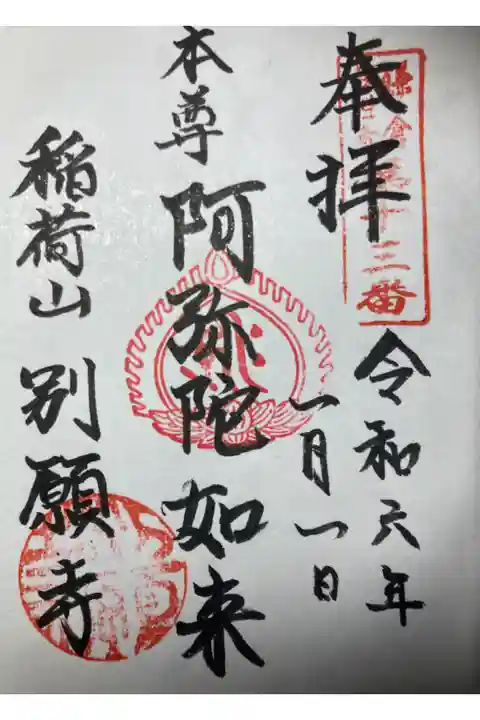 奉拝
令和六年
一月一日
本尊 阿弥陀如来
稲荷山 別願寺